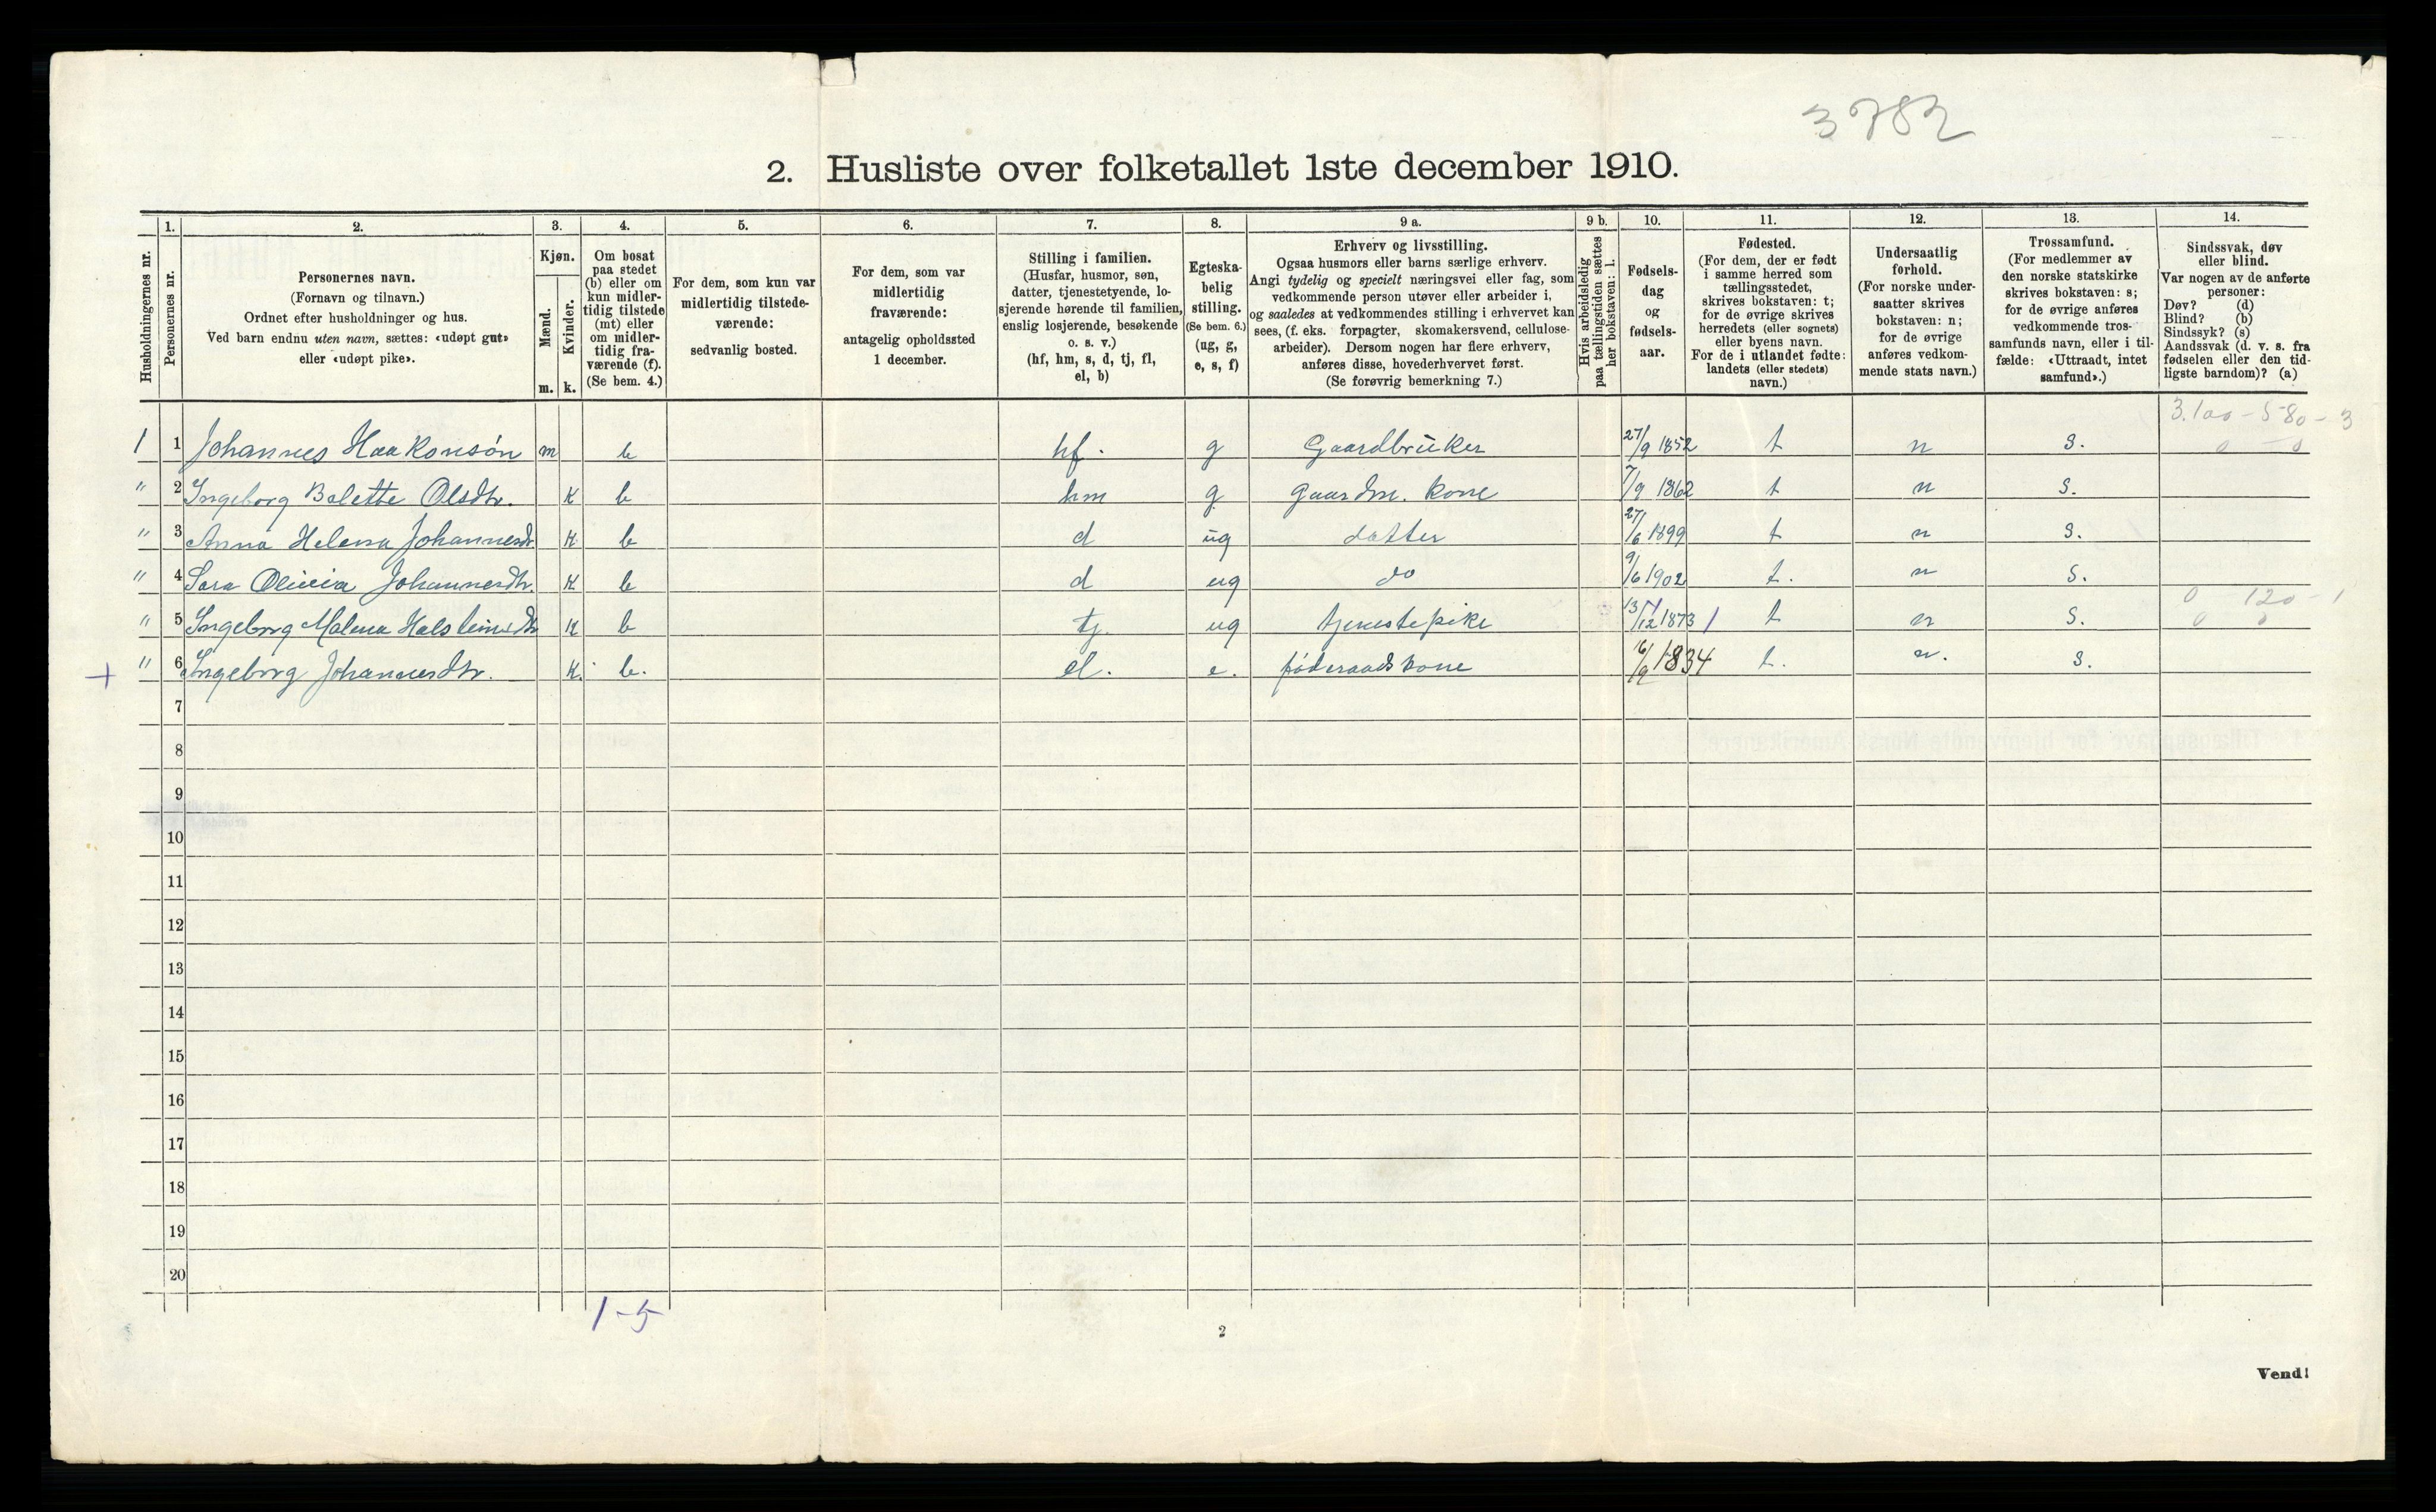 3782
2. Husliste over folketallet 1ste december 1910.
1. 2. 3. 4. 5. 6. 7. 8. 9 a. 9 b. 10. 11. 12. 13. 14.
Husholdningernes nr.
Personernes nr.
Personernes navn.
(Fornavn og tilnavn.)
Ordnet efter husholdninger og hus.
Ved barn endnu uten navn, sættes: «udøpt gut»
eller «udøpt pike».
Kjøn.
Mænd.
m.
Kvinder.
k.
Om bosat
paa stedet
(b) eller om
kun midler-
tidig tilstede
(mt) eller
om midler-
tidig fra-
værende (f).
(Se bem. 4.)
For dem, som kun var
midlertidig tilstede-
værende:
sedvanlig bosted.
For dem, som var
midlertidig
fraværende:
antagelig opholdssted
1 december.
Stilling i familien.
(Husfar, husmor, søn,
datter, tjenestetyende, lo-
sjerende hørende til familien,
enslig losjerende, besøkende
o. s. v.)
(hf, hm, s, d, tj, fl,
el, b)
Egteska-
belig
stilling.
(Se bem. 6.)
(ug, g,
e, s, f)
Erhverv og livsstilling.
Ogsaa husmors eller barns særlige erhverv.
Angi tydelig og specielt næringsvei eller fag, som
vedkommende person utøver eller arbeider i,
og saaledes at vedkommendes stilling i erhvervet kan
sees, (f. eks. forpagter, skomakersvend, cellulose-
arbeider). Dersom nogen har flere erhverv,
anføres disse, hovederhvervet først.
(Se forøvrig bemerkning 7.)
Hvis arbeidsledig
paa tællingstiden sættes
her bokstaven: l.
Fødsels-
dag
og
fødsels-
aar.
Fødested.
(For dem, der er født
i samme herred som
tællingsstedet,
skrives bokstaven: t;
for de øvrige skrives
herredets (eller sognets)
eller byens navn.
For de i utlandet fødte:
landets (eller stedets)
navn.)
Undersaatlig
forhold.
(For norske under-
saatter skrives
bokstaven: n;
for de øvrige
anføres vedkom-
mende stats navn.)
Trossamfund.
(For medlemmer av
den norske statskirke
skrives bokstaven: s;
for de øvrige anføres
vedkommende tros-
samfunds navn, eller i til-
fælde: «Uttraadt, intet
samfund».)
Sindssvak, døv
eller blind.
Var nogen av de anførte
personer:
Døv? (d)
Blind? (b)
Sindssyk? (s)
Aandssvak (d. v. s. fra
fødselen eller den tid-
ligste barndom)? (a)
3.100 - 580 - 3
1 1 Johannes Haakonsøn m b hf. g Gaardbruker 27/9 1852 t n s. 0 0
" 2 Ingeborg Bolette Olsdtr. K b hm g Gaardm. kone 7/9 1862 t n s.
" 3 Anna Helena Johannesdr K b d ug datter 27/6 1899 t n s.
" 4 Sara Olivia Johannesdtr. K b d ug do 9/6 1902 t. n s.
0 120 - 1
" 5 Ingeborg Malena Halsteinsdtr K b tj. ug tjenestepike 13/12 1873 t n s. 0 0
+ " 6 Ingeborg Johannesdtr. K. b. el. e. føderaadskone 16/9 1834 t. n. s.
7
8
9
10
11
12
13
14
15
16
17
18
19
20
1-5
2
Vend!